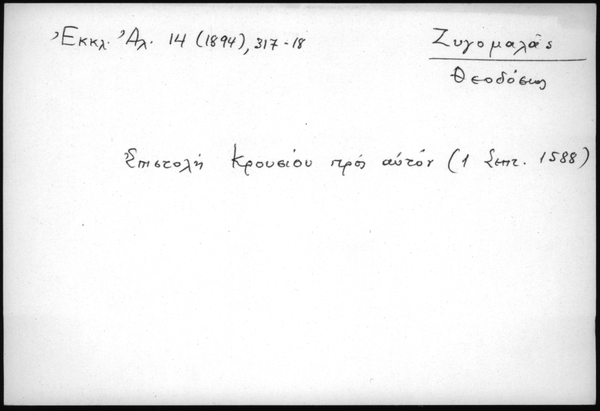 Ἐκκλ. Ἀλ. 14 (1894), 317-18
Ζυγομαλᾶς
Θεοδόσιος
Ἐπιστολή Κρουσίου πρός αὐτόν (1 Σεπτ. 1588)